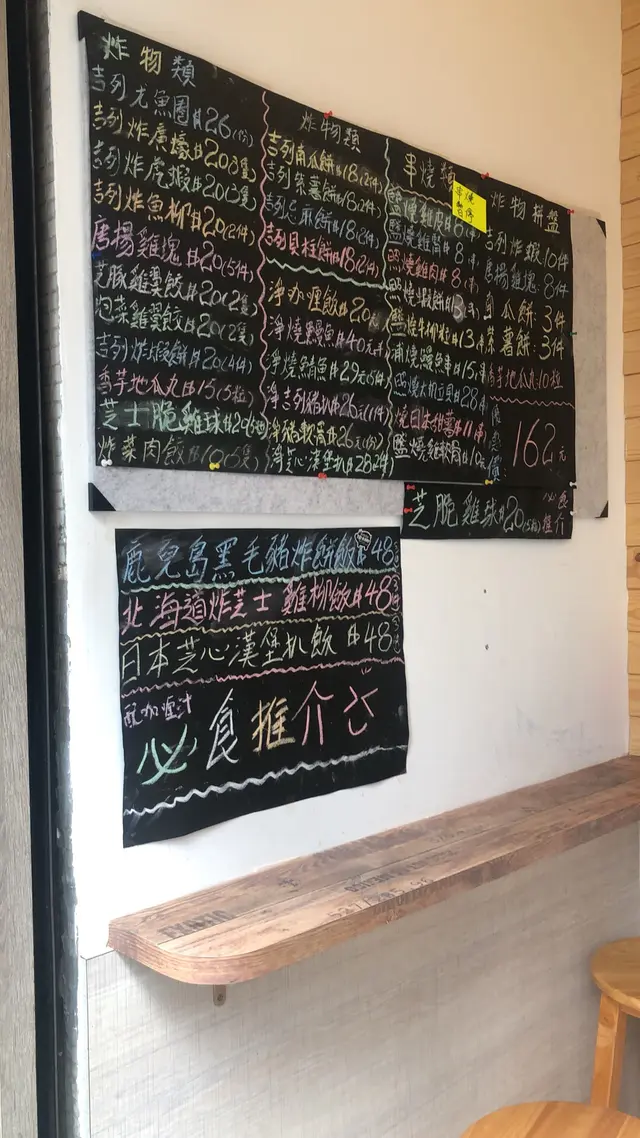 炸物類
吉列尤魚圈#26(份)
吉列炸廣蠔#20(3隻)
吉列炸虎蝦#20(3隻)
吉列炸魚柳#20(2件)
唐楊雞塊#20(5件)
芝豚雞翼餃#20(2隻)
泡菜雞翼餃#20(2隻)
吉列炸蝦餅#20(4件)
香芋地瓜丸#15(5粒)
芝士脆雞球#20
炸菜肉餃#10(5隻)
炸物類
吉列南瓜餅#18(2件)
吉列紫薯餅#18(2件)
吉列芝麻餅#18(2件)
吉列貝柱餅#18(2件)
淨加哩飯#20元
淨燒鰻魚#40元
淨燒鯖魚#29元
淨吉列豬扒#26元(1件)
淨豬軟骨#26元(份)
淨芝心漢堡扒#28
串燒類
串燒
暫停
鹽燒雞皮#8(串)
鹽燒雞腎#8(串)
鹽燒雞肉#8(串)
鹽燒牛柳粒#13(串)
蒲燒鰻魚串#15(串)
燒日本甜薯#11(串)
鹽燒雞軟骨#10元
炸物拼盤
吉列炸蝦10件
唐揚雞塊:8件
南瓜餅:3件
紫薯餅:3件
香芋地瓜丸:10粒
162元
芝脆雞球#20(5粒)
必食
推介
鹿兒島黑毛豬炸餅飯#48
北海道炸芝士雞柳飯#48
日本芝心漢堡扒飯#48
配加哩汁
必食推介